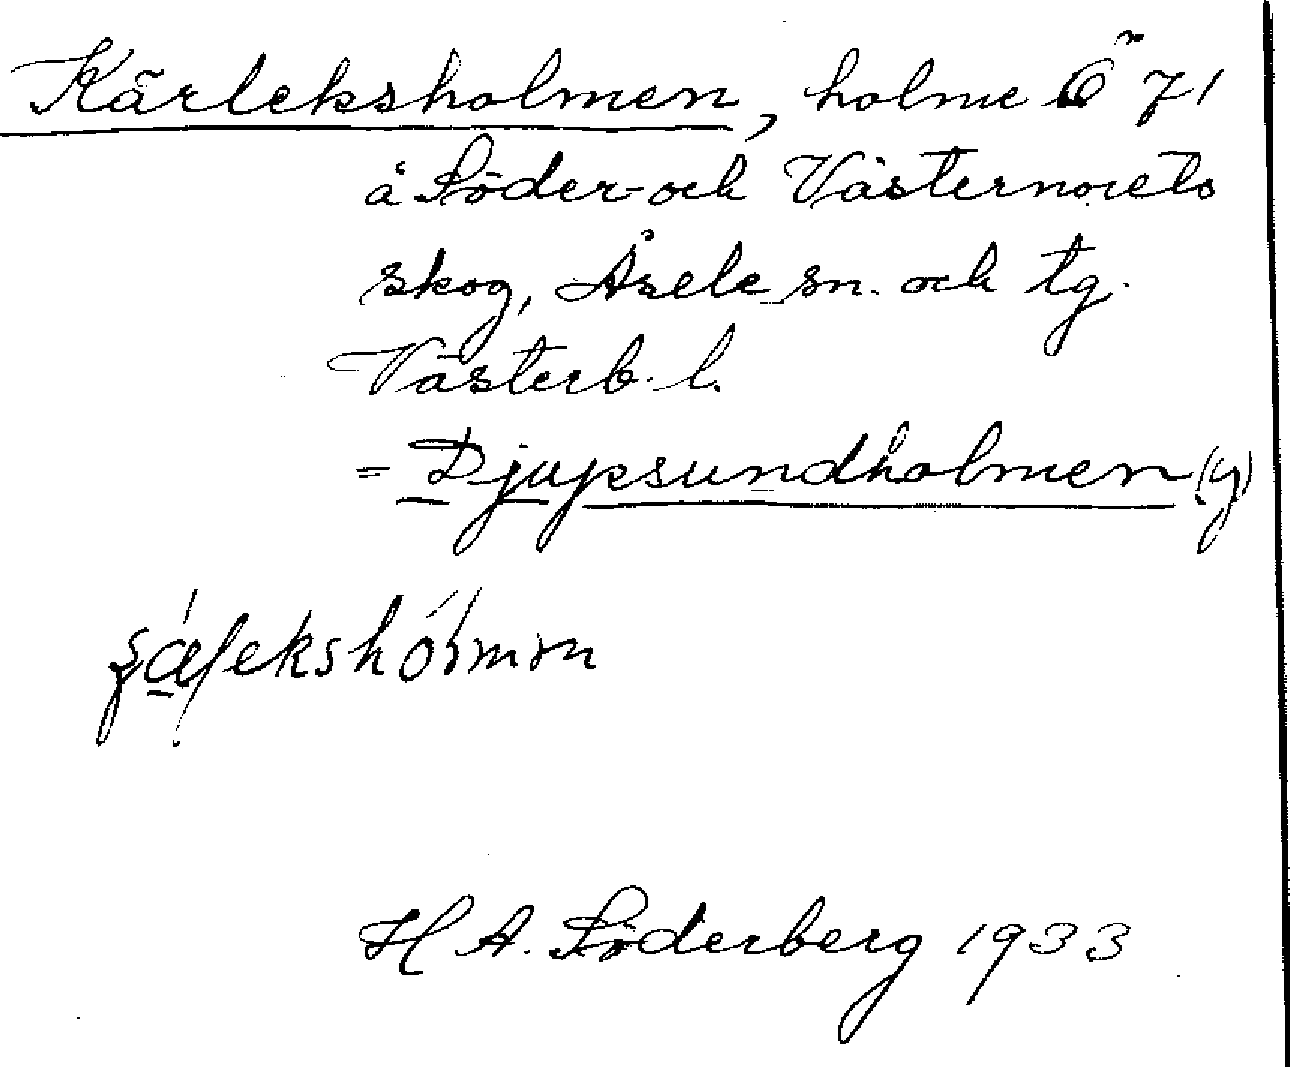 Kärleksholmen, holme Ö 71
å Söder- och Västernorets
skog, Åsele sn. och tg.
Västerb. l.
= Djupsundholmen (y)
H A. Söderberg 1933